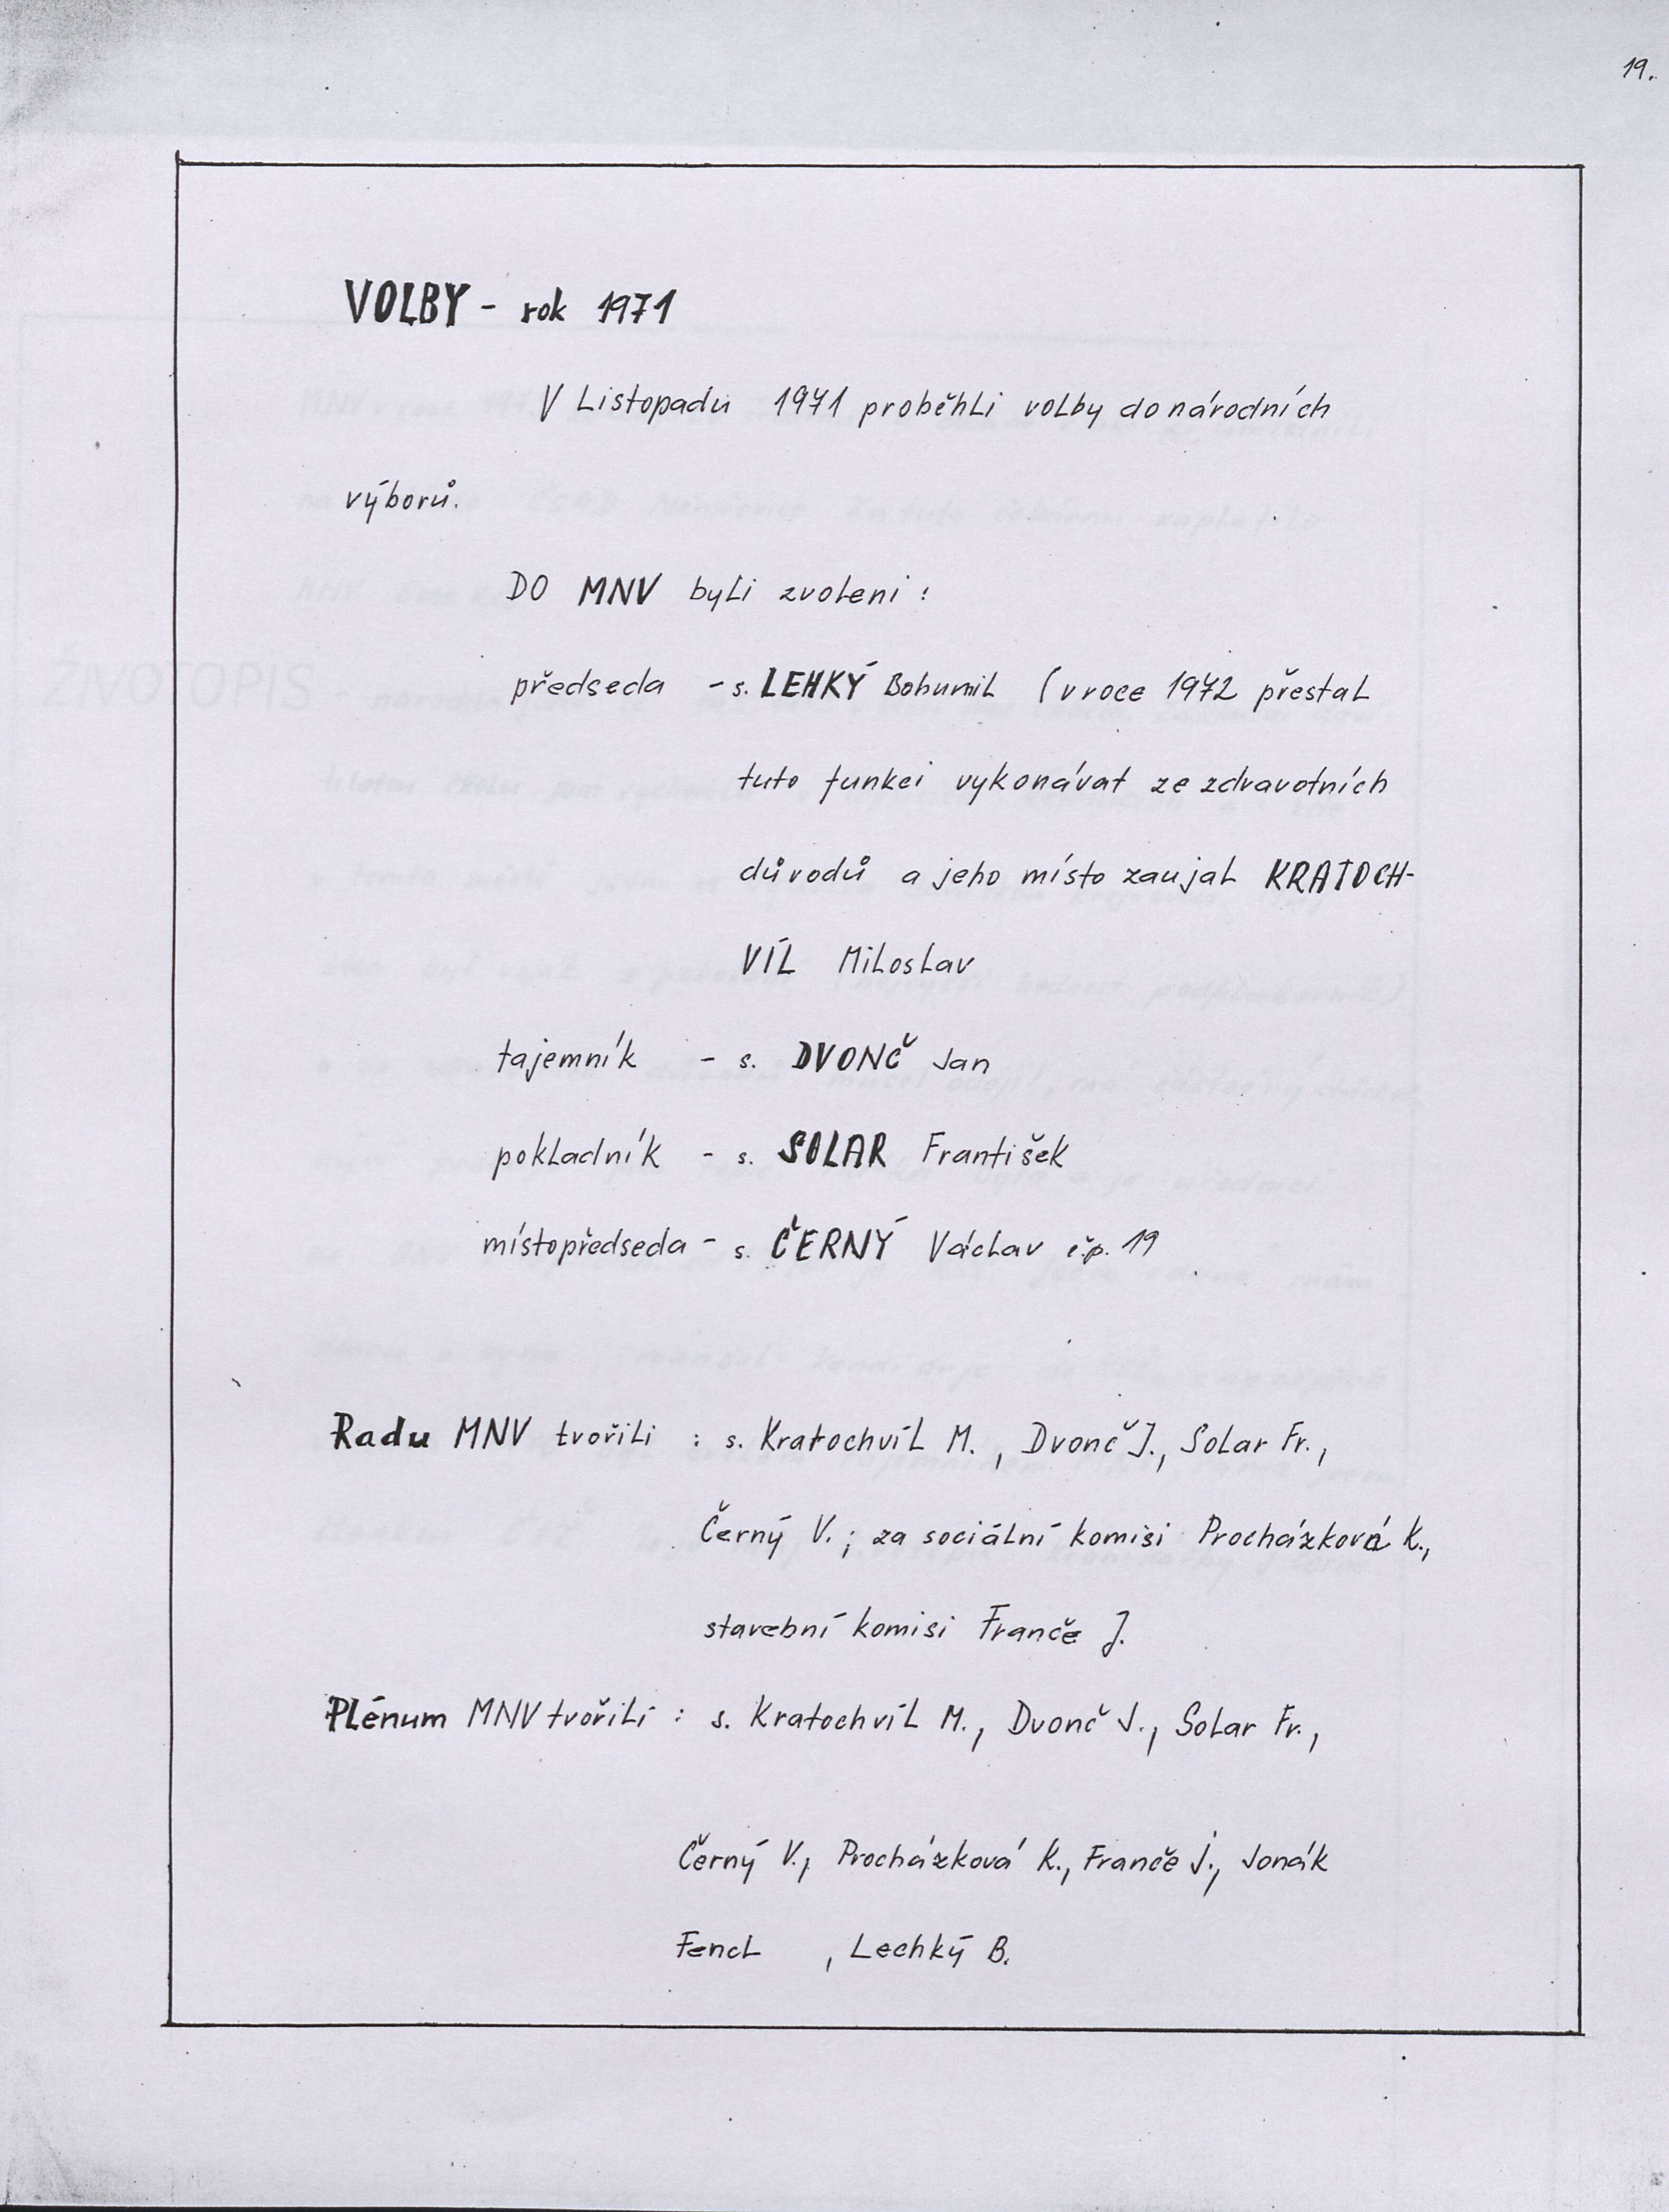 19.
VOLBY - rok 1971
V Listopadu 1971 proběhli volby do národních
výborů.
DO MNV byli zvoleni :
předseda - s. LEHKÝ Bohumil (v roce 1972 přestal
tuto funkci vykonávat ze zdravotních
důvodů a jeho místo zaujal KRATOCH-
VÍL Miloslav
tajemník - s. DVONČ Jan
pokladník - s. SOLAR František
místopředseda - s. ČERNÝ Václav č.p. 19
Radu MNV tvořili : s. Kratochvíl M., Dvonč J., Solar Fr.,
Černý V.; za sociální komisi Procházková K.,
stavební komisi Franče J.
Plénum MNV tvořili : s. Kratochvíl M., Dvonč J., Solar Fr.,
Černý V., Procházková K., Franče J., Jonák
Fencl , Lechký B.